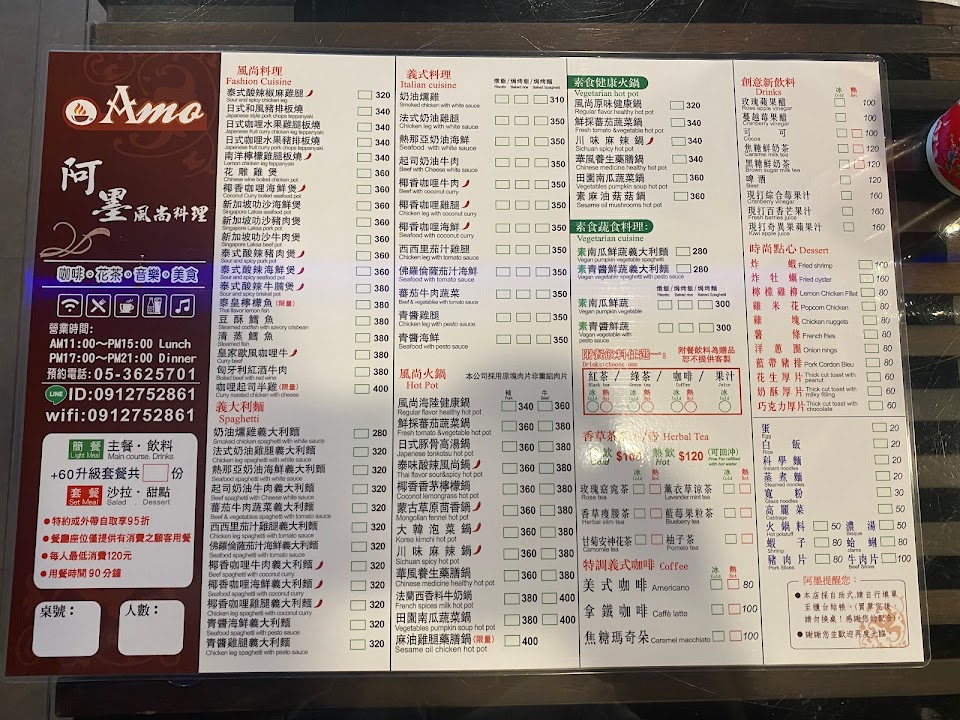 Amo
阿墨風尚料理
咖啡・花茶・音樂・美食
營業時間:
AM11:00～PM15:00 Lunch
PM17:00～PM21:00 Dinner
預約電話:05-3625701
LINE ID:0912752861
wifi:0912752861
簡餐 主餐・飲料
Light Meal Main course. Drinks
+60升級套餐共 份
套餐 沙拉・甜點
Set Meal Salad . Dessert
●特約或外帶自取享95折
●餐廳座位僅提供有消費之顧客用餐
●每人最低消費120元
●用餐時間90分鐘
桌號:
人數:
風尚料理
Fashion Cuisine
泰式酸辣椒麻雞腿 320
Sour and spicy chicken leg
日式和風豬排板燒 340
Japanese style pork chops teppanyaki
日式咖哩水果雞腿板燒 340
Japanese fruit curry chicken leg teppanyaki
日式咖哩水果豬排板燒 340
Japanese fruit curry pork chops teppanyaki
南洋檸檬雞腿板燒 340
Lemon chicken leg teppanyaki
花雕雞煲 360
Chinese wine boiled chicken pot
椰香咖哩海鮮煲 360
Coconut Curry boiled seafood pot
新加坡叻沙海鮮煲 360
Singapore Laksa seafood pot
新加坡叻沙豬肉煲 360
Singapore Laksa pork pot
新加坡叻沙牛肉煲 360
Singapore Laksa beef pot
泰式酸辣豬肉煲 360
Sour and spicy pork pot
泰式酸辣海鮮煲 360
Sour and spicy seafood pot
泰式酸辣牛腩煲 380
Sour and spicy brisket pot
泰皇檸檬魚(限量) 380
Thai flavor lemon fish
豆酥鱈魚 380
Steamed codfish with savory crisbean
清蒸鱈魚 380
Steamed fish
皇家歐風咖哩牛 380
Curry beef
匈牙利紅酒牛肉 380
Red wine beef
咖哩起司半雞(限量) 400
Curry roasted chicken with cheese
義大利麵
Spaghetti
奶油燻雞義大利麵 280
Smoked chicken spaghetti with white sauce
法式奶油雞腿義大利麵 320
Chicken leg spaghetti with white sauce
熱那亞奶油海鮮義大利麵 320
Seafood spaghetti with white sauce
起司奶油牛肉義大利麵 320
Beef spaghetti with Cheese white sauce
蕃茄牛肉蔬菜義大利麵 320
Beef & vegetables spaghetti with tomato sauce
西西里茄汁雞腿義大利麵 320
Chicken leg spaghetti with tomato sauce
佛羅倫薩茄汁海鮮義大利麵 320
Seafood spaghetti with tomato sauce
椰香咖哩牛肉義大利麵 320
Beef spaghetti with coconut curry
椰香咖哩海鮮義大利麵 320
Seafood spaghetti with coconut curry
椰香咖哩雞腿義大利麵 320
Chicken leg spaghetti with coconut curry
青醬海鮮義大利麵 320
Seafood spaghetti with pesto sauce
青醬雞腿義大利麵 320
Chicken leg spaghetti with pesto sauce
義式料理 燉飯/焗烤飯/焗烤麵
Italian cuisine Risotto Baked rice Baked Spaghetti
奶油燻雞 310
Smoked chicken with white sauce
法式奶油雞腿 350
Chicken leg with white sauce
熱那亞奶油海鮮 350
Seafood with white sauce
起司奶油牛肉 350
Beef with Cheese white sauce
椰香咖哩牛肉 350
Beef with coconut curry
椰香咖哩雞腿 350
Chicken leg with coconut curry
椰香咖哩海鮮 350
Seafood with coconut curry
西西里茄汁雞腿 350
Chicken leg with tomato sauce
佛羅倫薩茄汁海鮮 350
Seafood with tomato sauce
蕃茄牛肉蔬菜 350
Beef & vegetable with tomato sauce
青醬雞腿 350
Chicken leg with pesto sauce
青醬海鮮 350
Seafood with pesto sauce
風尚火鍋 本公司採用原塊肉片非重組肉片
Hot Pot 豬 Pork 牛 Beef
風尚海陸健康鍋 340 360
Regular flavor healthy hot pot
鮮採蕃茄蔬菜鍋 360 380
Fresh tomato &vegetable hot pot
日式豚骨高湯鍋 360 380
Japanese tonkotsu hot pot
泰味酸辣風尚鍋 360 380
Thai flavor sour&spicy hot pot
椰香香茅檸檬鍋 360 380
Coconut lemongrass hot pot
蒙古草原茴香鍋 360 380
Mongolian fennel hot pot
大韓泡菜鍋 360 380
Korea kimchi hot pot
川味麻辣鍋 360 380
Sichuan spicy hot pot
華風養生藥膳鍋 360 380
Chinese medicine healthy hot pot
法蘭西香料牛奶鍋 380 400
French spices milk hot pot
田園南瓜蔬菜鍋 380 400
Vegetables pumpkin soup hot pot
麻油雞藥膳鍋(限量) 400
Sesame oil chicken hot pot
素食健康火鍋
Vegetarian hot pot
風尚原味健康鍋 320
Regular flavor healthy hot pot
鮮採蕃茄蔬菜鍋 340
Fresh tomato &vegetable hot pot
川味麻辣鍋 340
Sichuan spicy hot pot
華風養生藥膳鍋 340
Chinese medicine healthy hot pot
田園南瓜蔬菜鍋 360
Vegetables pumpkin soup hot pot
素麻油菇菇鍋 360
Sesame oil mushrooms hot pot
素食蔬食料理:
Vegetarian cuisine
素南瓜鮮蔬義大利麵 280
Vegan pumpkin vegetable spaghetti
素青醬鮮蔬義大利麵 280
Vegan vegetable spaghetti with pesto sauce
燉飯/焗烤飯/焗烤麵
Risotto Baked rice Baked Spaghetti
素南瓜鮮蔬 300
Vegan pumpkin vegetable
素青醬鮮蔬 300
Vegan vegetable
附餐飲料任選一: 附餐飲料為贈品
Drinks:choose one 恕不提供客製
紅茶/綠茶/咖啡/果汁
Black Tea Green Tea Coffee Juice
冷 熱 冷 熱 冷 熱 冷
香草茶 Herbal Tea
Cold $100 熱飲 Hot $120 (可回沖)
Free Pan-refilled with hot water
冰 Cold 熱 Hot 冰 Cold 熱 Hot
玫瑰窈窕茶 薰衣草涼茶
Rose tea Lavender mint tea
香草瘦腰茶 藍莓果粒茶
Herbal slim tea Blueberry tea
甘菊安神花茶 柚子茶
Camomile tea Pomelo tea
特調義式咖啡 Coffee 冰 Cold 熱 Hot
美式咖啡 Americano 80
拿鐵咖啡 Caffè latte 100
焦糖瑪奇朵 Caramel macchiato 100
創意新飲料
Drinks 冰 Cold 熱 Hot
玫瑰蘋果醋 100
Rose apple vinegar
蔓越莓果醋 100
Cranberry vinegar
可可 100
Cocoa
焦糖鮮奶茶 120
Caramel milk tea
黑糖鮮奶茶 120
Brown sugar milk tea
啤酒 120
Beer
現打綜合莓果汁 160
Cranberry vinegar
現打百香芒果汁 160
Fresh berries juice
現打奇異果蘋果汁 160
Kiwi apple juice
時尚點心 Dessert
炸蝦 Fried shrimp 100
炸牡蠣 Fried oyster 100
檸檬雞柳 Lemon Chicken Fillet 80
雞米花 Popcorn Chicken 80
雞塊 Chicken nuggets 80
薯條 French fries 80
洋蔥圈 Onion rings 80
藍帶豬排 Pork Gordon Bleu 80
花生厚片 Thick cut toast with peanut 60
奶酥厚片 Thick cut toast with milky filling 60
巧克力厚片 Thick cut toast with chocolate 60
蛋 20
Egg
白飯 20
Rice
科學麵 20
Instant noodles
蒸煮麵 20
Steamed noodles
寬粉 30
Glass noodles
高麗菜 50
Cabbage
火鍋料 50 濃湯 50
Hot potstuff Soup
蝦子 80 蛤蜊 80
Shrimp clams
豬肉片 80 牛肉片 100
Pork Slices Beef Slices
阿墨提醒您:
●本店採自助式,請自行填單至櫃台結帳。(買單完後請勿換桌!感謝您的配合)
●謝謝您並歡迎再度光臨